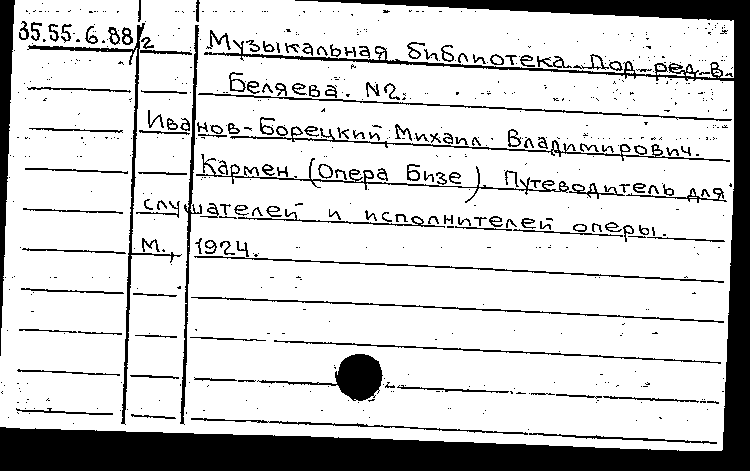 35.55.6.88/2
Музыкальная библиотека. Под ред. В.
Беляева. N2.
Иванов-Борецкий, Михаил Владимирович.
Кармен. (Опера Бизе). Путеводитель для
слушателей и исполнителей оперы.
М., 1924.